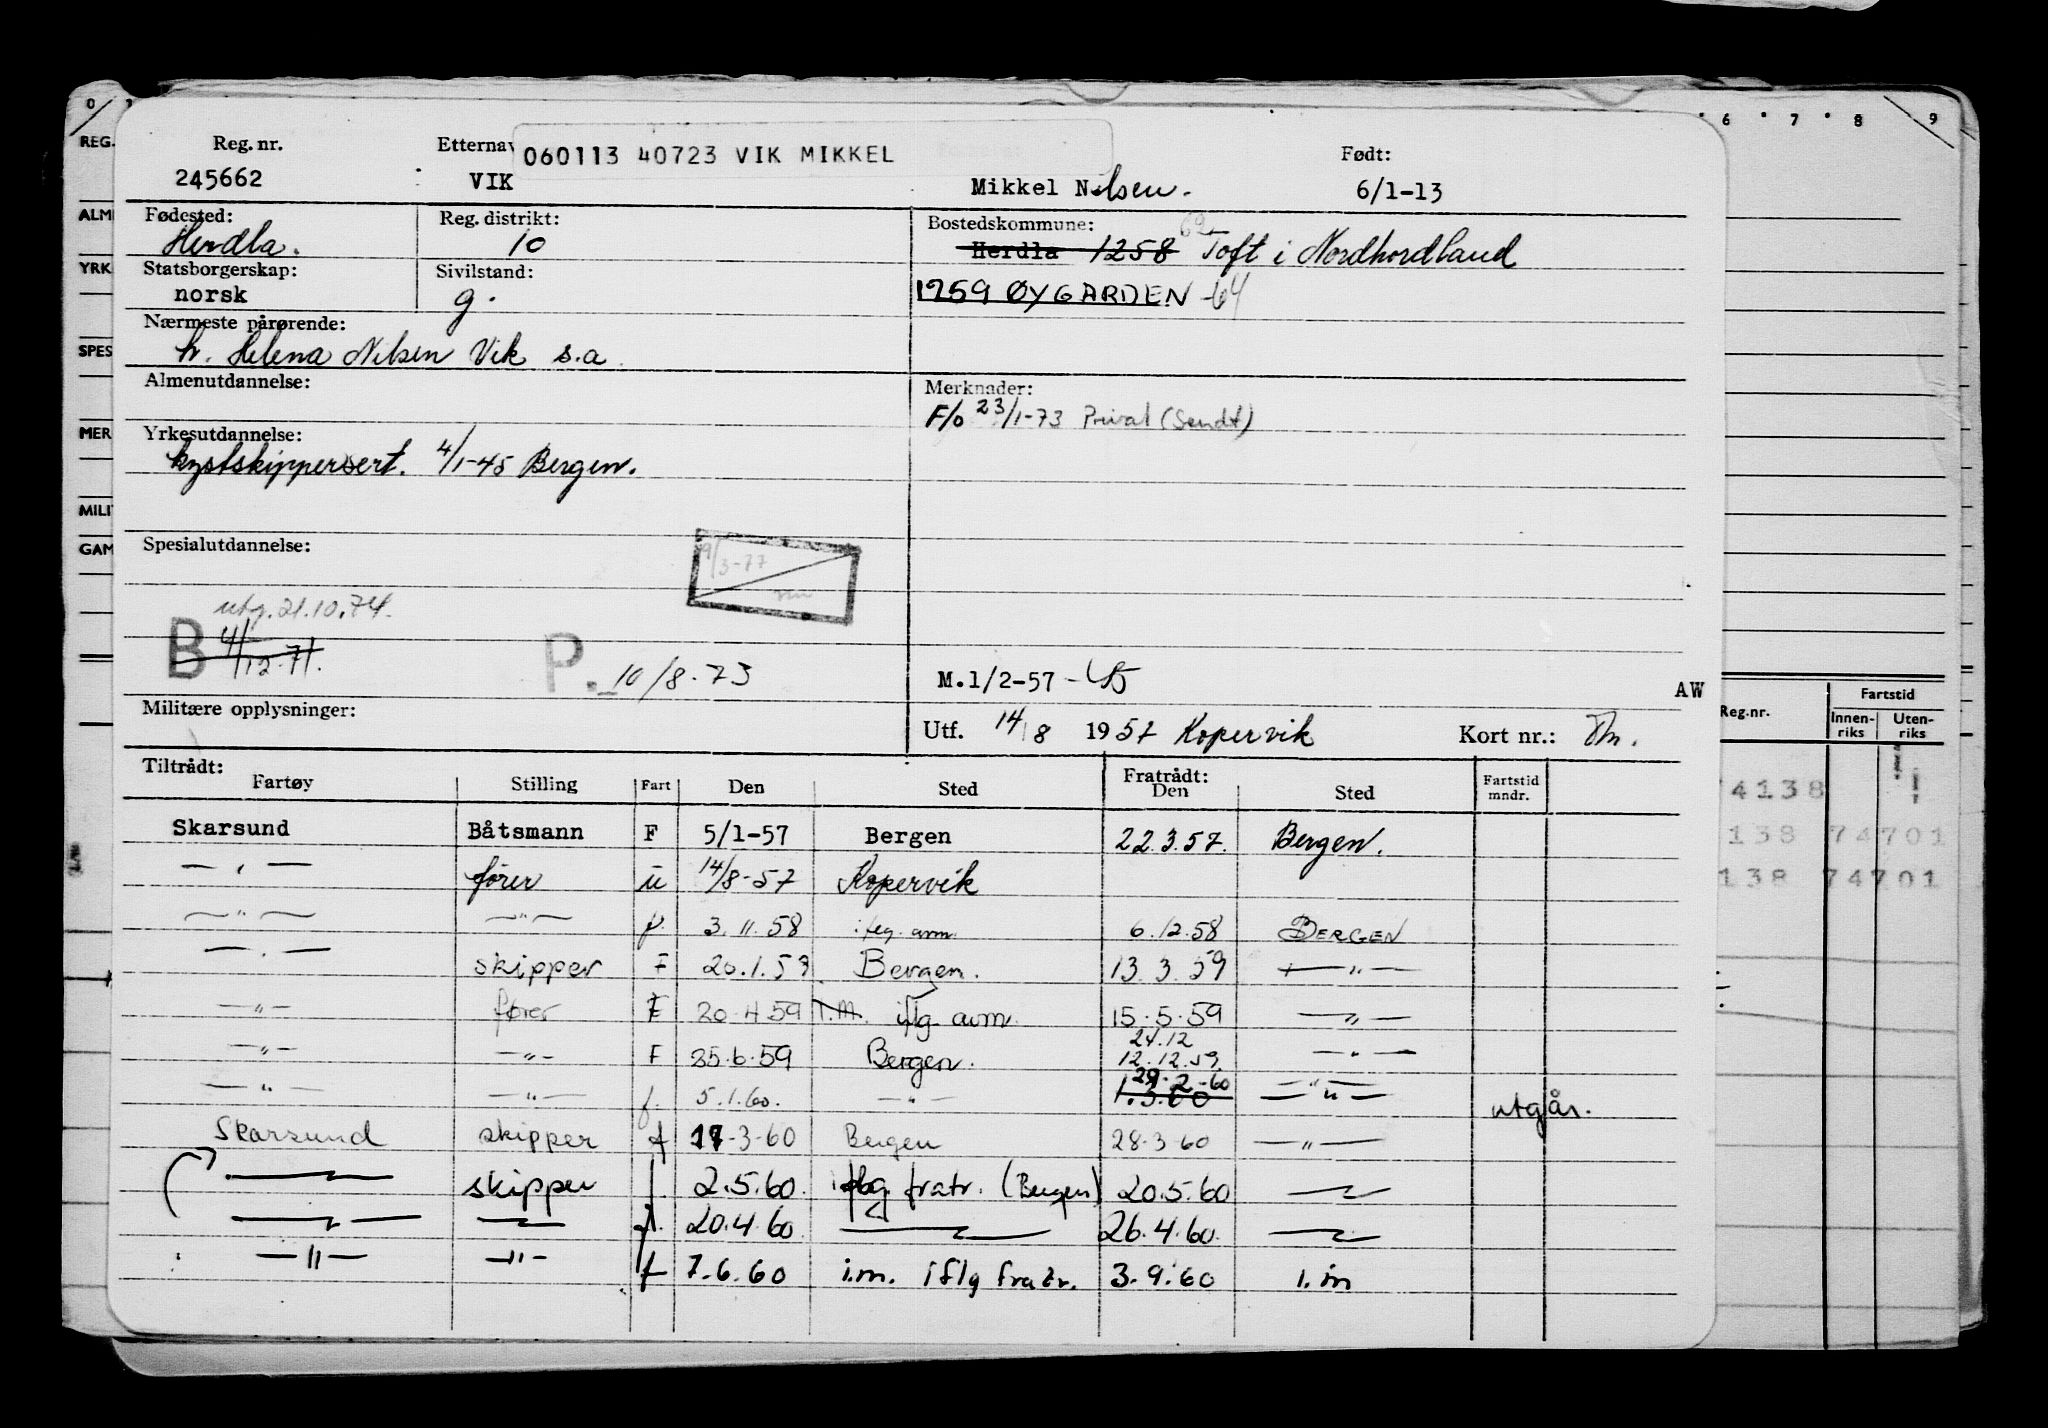 0
6 7 8 9
REG.
Reg. nr. Etternav 060113 40723 VIK MIKKEL Født:
245662 VIK Mikkel Nilsen. 6/1-13
ALM
Fødested: Reg. distrikt: Bostedskommune:
Herdla. 10 Herdla 1258 Toft i Nordhordland
YRK
Statsborgerskap: Sivilstand:
norsk g. 1259 ØYGARDEN -64
Nærmeste pårørende:
SPES
h. Helena Nilsen Vik s.a.
Almenutdannelse: Merknader:
F/o 23/1-73 Privat (Sendt)
MER
Yrkesutdannelse:
kystskippersert. 4/1-45 Bergen.
MILI
GAM
Spesialutdannelse:
9/3-77
utg. 21.10.74.
B 4/12-71. P. 10/8-73
M.1/2-57 AW
Militære opplysninger:
Utf. 14/8 1957 Kopervik Kort nr.:
Reg.nr. Fartstid
Innen-riks Uten-riks
Tiltrådt: Fratrådt:
Fartøy Stilling Fart Den Sted Den Sted Fartstid mndr.
Skarsund Båtsmann F 5/1-57 Bergen 22.3.57. Bergen.
—"— fører u 14/8-57 Kopervik
—"— —"— f. 3.11.58 iflg. avm. 6.12.58 BERGEN
—"— skipper F 20.1.59 Bergen. 13.3.59 —"—
—"— fører F 20.4.59 I.M. iflg. avm. 15.5.59 —"—
24.12
—"— —"— F 25.6.59 Bergen. 12.12.59 —"—
29.2-60
—"— —"— f. 5.1.60. —"— 1.3.60 —"— utgår.
Skarsund skipper f 17-3-60 Bergen 28.3.60 —"—
—"— skipper f 2.5.60. iflg. fratr. (Bergen) 20.5.60 —"—
—"— —"— f. 20.4.60. —"— 26.4.60. —"—
—"— —"— f 7.6.60 i.m. iflg fratr. 3.9.60 i.m
4138
138 74701
138 74701